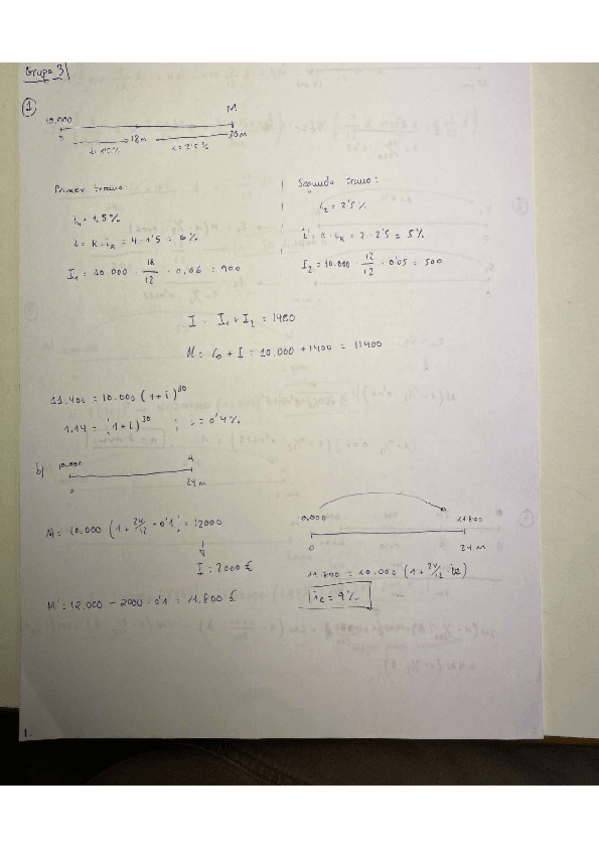 Grupo 3
1
10.000 M
0 18m 30m
i=2'5%
Primer tramo:
i = 1,5%
i = k · ik = 4 · 1'5 = 6%
I1 = 10.000 · 18/12 · 0,06 = 900
Segundo tramo:
i2 = 2'5%
i = k · ik = 2 · 2'5 = 5%
I2 = 10.000 · 12/12 · 0'05 = 500
I = I1 + I2 = 1400
M = C0 + I = 10.000 + 1400 = 11400
11.400 = 10.000 (1+i)^30
1.14 = (1+i)^30 ; i = 0'4%
b) 10.000
0 24m
M = 10.000 (1 + 24/12 · 0'1) = 12000
I = 2000 €
M' = 12.000 - 2000 · 0'1 = 11.800 €
10.000 11800
0 24 M
11.800 = 10.000 (1 + 24/12 · ie)
ie = 9%
1.